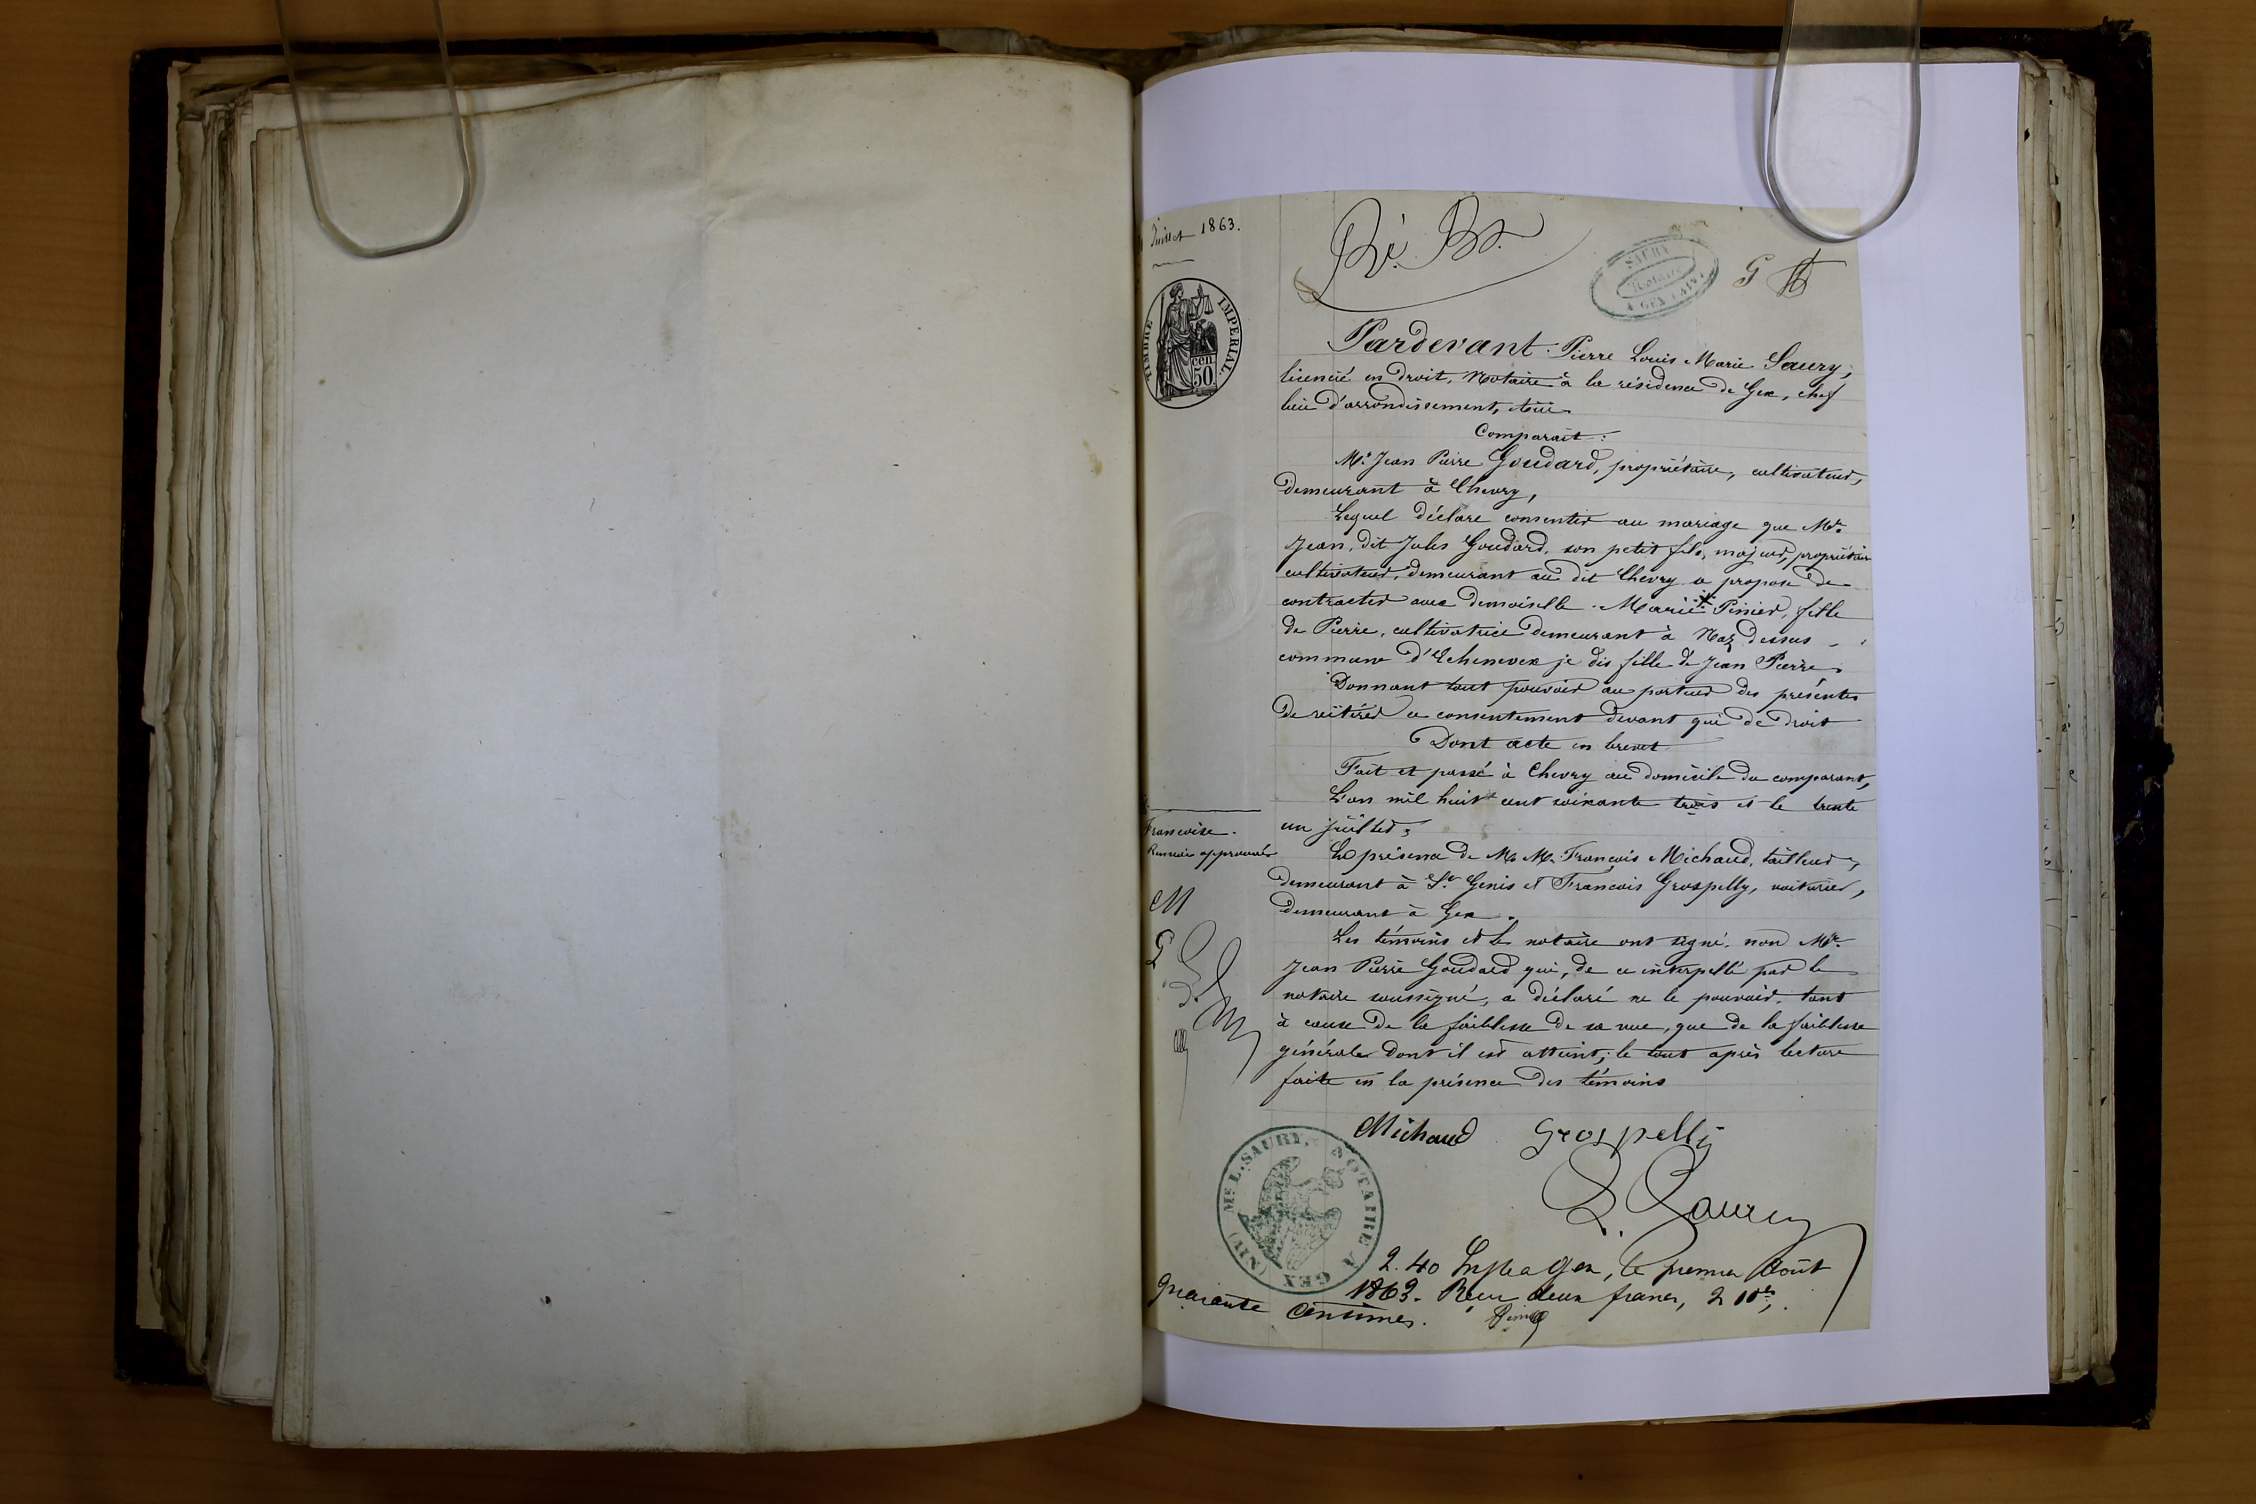 Juillet 1863.
TIMBRE IMPERIAL.
cen.
50
SAURY
Notaire
A GEX (AIN)
G
Pardevant Pierre Louis Marie Saury,
licencié en droit, Notaire à la résidence de Gex, chef
lieu d'arrondissement,
Comparait :
Mr. Jean Pierre Goudard, propriétaire, cultivateur,
demeurant à Chevry,
Lequel déclare consentir au mariage que Mr.
Jean, dit Jules Goudard, son petit fils, majeur, propriétaire
cultivateur, demeurant au dit Chevry a propose de
contracter avec demoiselle Marie Perrier, fille
de Pierre, cultivatrice demeurant à Naz dessus
commune d'Echenevex je dis fille de Jean Pierre.
Donnant tout pouvoir au porteur des présentes
de réitérer ce consentement devant qui de droit
Dont acte en brevet
Fait et passé à Chevry au domicile du comparant,
L'an mil huit cent soixante trois et le trente
un juillet,
Françoise.
Renvoi approuvé
En présence de M. M. François Michaud, tailleur,
demeurant à St. Genis et François Grospelly, voiturier,
demeurant à Gex.
M
G
Les témoins et le notaire ont signé, non Mr.
Jean Pierre Goudard qui, de ce interpellé par le
notaire soussigné, a déclaré ne le pouvoir, tant
à cause de la faiblesse de sa vue, que de la faiblesse
générale dont il est atteint; le tout après lecture
faite en la présence des témoins
Michaud Grospelly
L. Saury
Me. L. SAURY, NOTAIRE A GEX (AIN)
2.40 à Gex, le premier Août
1863. Reçu deux francs, 2 10es,
quarante centimes.